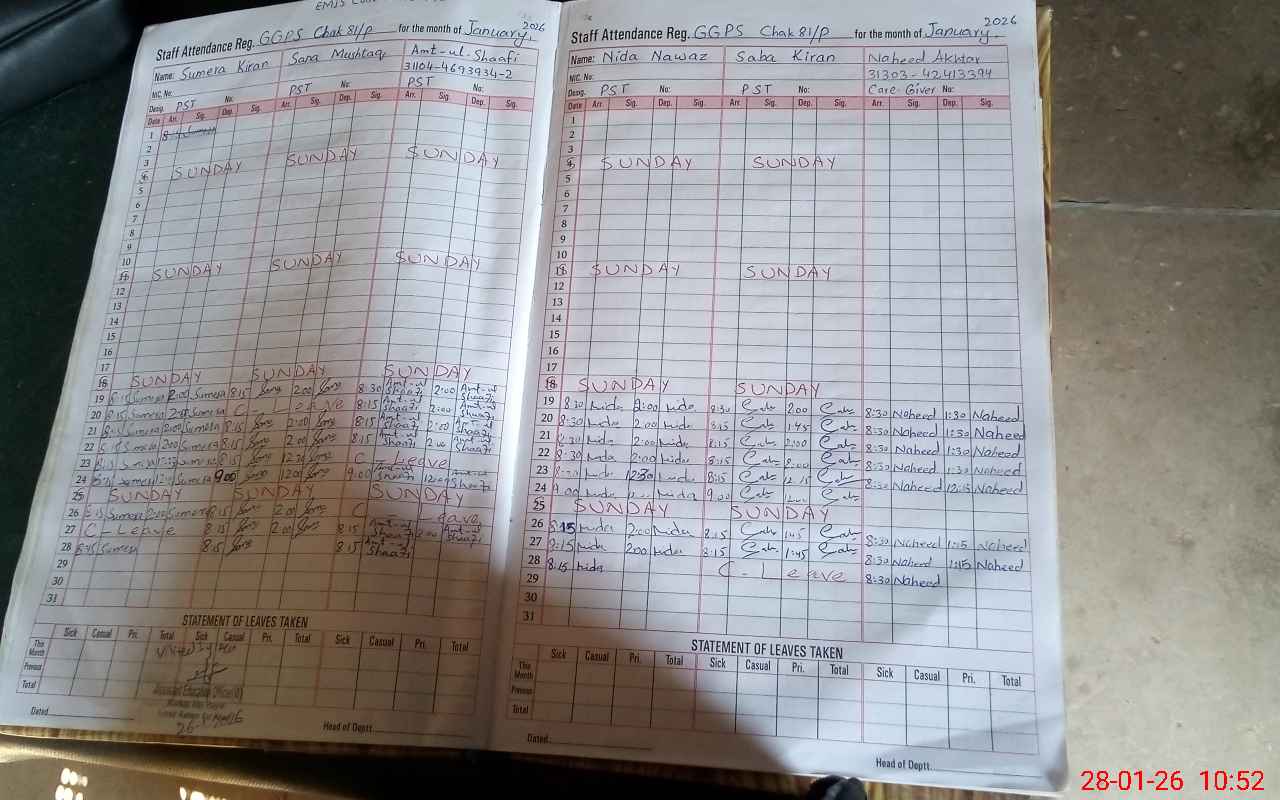 Staff Attendance Reg. GGPS Chak 81/P for the month of January. 2026
Name: Sumera Kiran Sana Mushtaq Amt-ul-Shaafi
31104-4693934-2
NIC. No:
Desig. PST No: PST No: PST No:
Date Arr. Sig. Dep. Sig. Arr. Sig. Dep. Sig. Arr. Sig. Dep. Sig.
1
2
3
4 SUNDAY SUNDAY SUNDAY
5
6
7
8
9
10
11 SUNDAY SUNDAY SUNDAY
12
13
14
15
16
17
18 SUNDAY SUNDAY SUNDAY
19 8:15 Sumera 2:00 Sumera 8:15 2:00 8:30 Amt-ul Shaafi 2:00 Amt-ul Shaafi
20 8:15 Sumera Sumera C - Leave 8:15 Amt-ul Shaafi 2:00 Amt-ul Shaafi
21 8:15 Sumera 2:00 Sumera 8:15 2:00 8:15 Amt-ul Shaafi 2:00 Amt-ul Shaafi
22 8:15 Sumera 2:00 Sumera 8:15 2:00 8:15 Amt-ul Shaafi 2:00 Amt-ul Shaafi
23 Sumera Sumera 8:15 12:30 C - Leave
24 Sumera Sumera 9:00 12:00 9:00 Amt-ul Shaafi 12:00 Amt-ul Shaafi
25 SUNDAY SUNDAY SUNDAY
26 8:15 Sumera 2:00 Sumera 8:15 2:00 C - Leave
27 C - Leave 8:15 2:00 8:15 Amt-ul Shaafi 2:00 Amt-ul Shaafi
28 8:15 Sumera 8:15 8:15 Amt-ul Shaafi
29
30
31
STATEMENT OF LEAVES TAKEN
Sick Casual Pri. Total Sick Casual Pri. Total Sick Casual Pri. Total
This Month
Previous
Total
Assistant Education Officer
Dated
Head of Deptt.
Staff Attendance Reg. GGPS Chak 81/P for the month of January. 2026
Name: Nida Nawaz Saba Kiran Naheed Akhtar
NIC. No: 31303-42413394
Desig. PST No: PST No: Care-Giver No:
Date Arr. Sig. Dep. Sig. Arr. Sig. Dep. Sig. Arr. Sig. Dep. Sig.
1
2
3
4 SUNDAY SUNDAY
5
6
7
8
9
10
11 SUNDAY SUNDAY
12
13
14
15
16
17
18 SUNDAY SUNDAY
19 8:30 nida 2:00 nida 8:30 2:00 8:30 Naheed 1:30 Naheed
20 8:30 nida 2:00 nida 8:15 1:45 8:30 Naheed 1:30 Naheed
21 8:30 nida 2:00 nida 8:15 2:00 8:30 Naheed 1:30 Naheed
22 8:30 nida 2:00 nida 8:15 2:00 8:30 Naheed 1:30 Naheed
23 nida 12:30 nida 8:15 12:15 8:30 Naheed 12:15 Naheed
24 9:00 nida nida 9:00
25 SUNDAY SUNDAY
26 8:15 nida 2:00 nida 8:15 1:45 8:30 Naheed 1:15 Naheed
27 8:15 nida 2:00 nida 8:15 1:45 8:30 Naheed 1:15 Naheed
28 8:15 nida C - Leave 8:30 Naheed
29
30
31
STATEMENT OF LEAVES TAKEN
Sick Casual Pri. Total Sick Casual Pri. Total Sick Casual Pri. Total
This Month
Previous
Total
Dated
Head of Deptt.
28-01-26 10:52